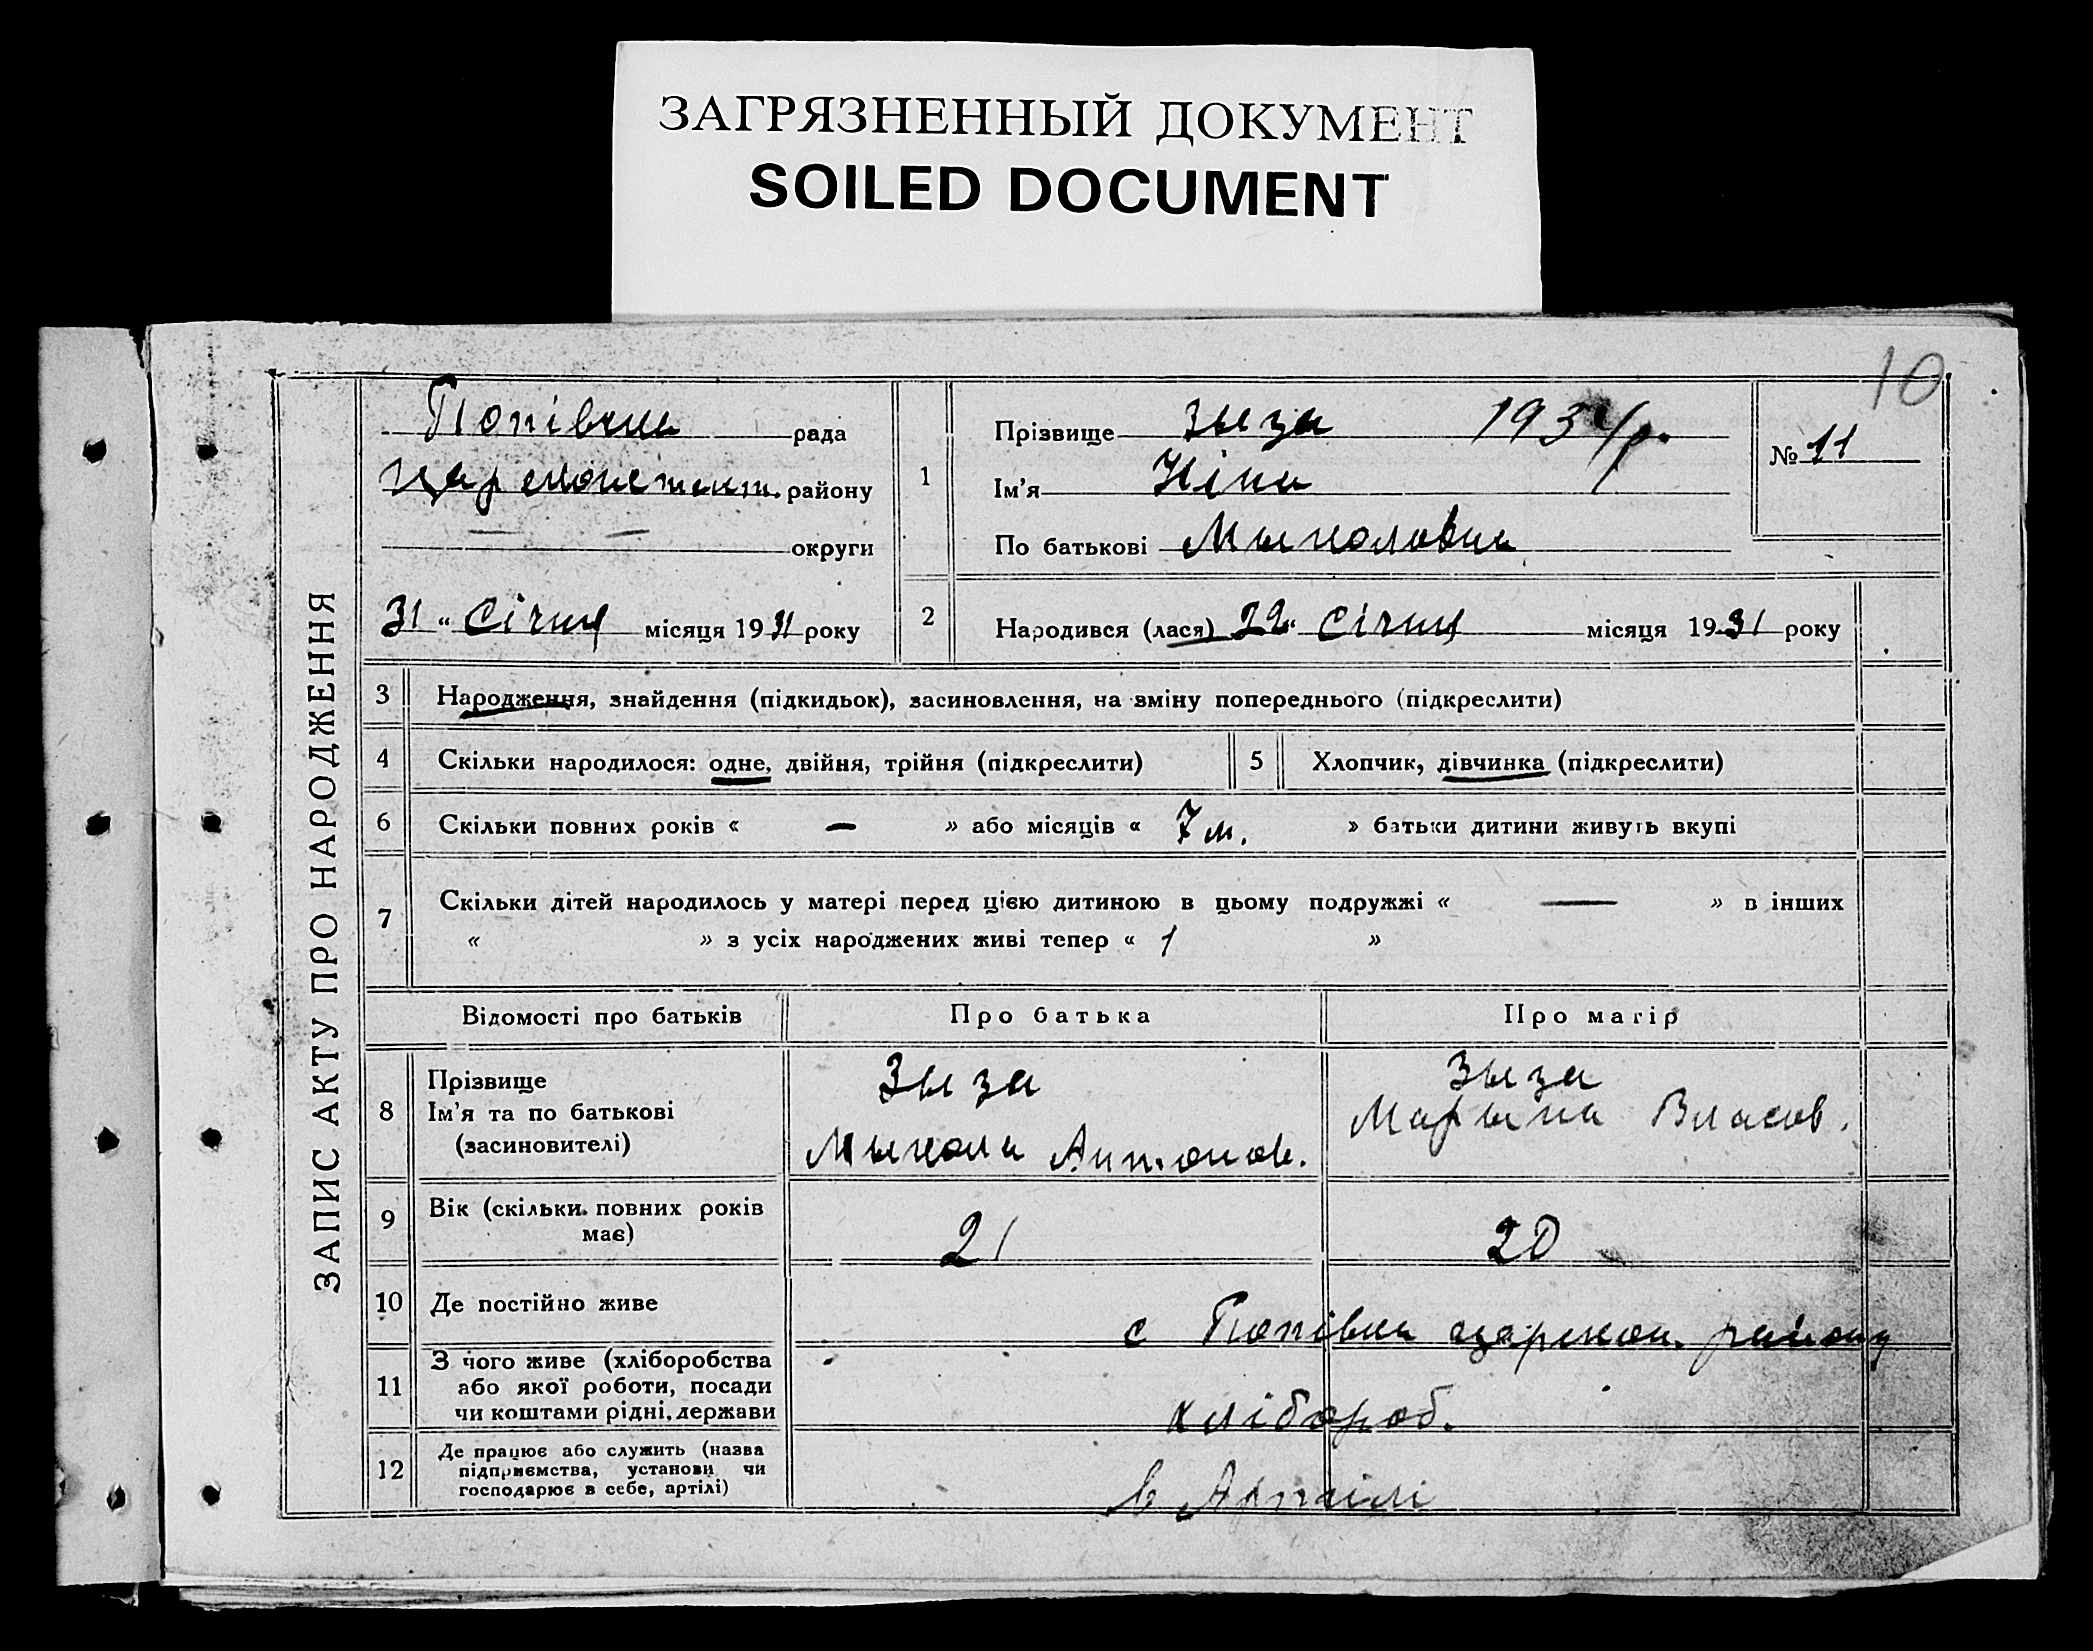 ЗАГРЯЗНЕННЫЙ ДОКУМЕНТ
SOILED DOCUMENT
10
ЗАПИС АКТУ ПРО НАРОДЖЕННЯ
Попівська рада
району
округи
31 " Січня місяця 1931 року
1
Прізвище Зыза 193 р.
Ім'я Ніна
По батькові Мыколовна
№ 11
2
Народився (лася) 29 " Січня місяця 1931 року
3 Народження, знайдення (підкидьок), засиновлення, на зміну попереднього (підкреслити)
4 Скільки народилося: одне, двійня, трійня (підкреслити)
5 Хлопчик, дівчинка (підкреслити)
6 Скільки повних років « — » або місяців « 7 м. » батьки дитини живуть вкупі
7 Скільки дітей народилось у матері перед цією дитиною в цьому подружжі « — » в інших
« » з усіх народжених живі тепер « 1 »
Відомості про батьків Про батька Про матір
8 Прізвище
Ім'я та по батькові
(засиновителі)
Зыза
Мыкола Антонов.
Зыза
Марына Власов.
9 Вік (скільки повних років
має)
21 20
10 Де постійно живе
с Попівка царекон. району
11 З чого живе (хліборобства
або якої роботи, посади
чи коштами рідні, держави
хлібороб.
12 Де працює або служить (назва
підприємства, установи чи
господарює в себе, артілі)
в Артілі